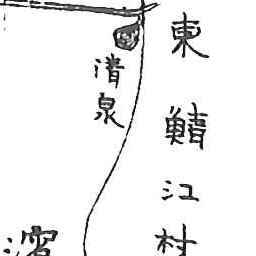 東鯖江村
清泉
濱